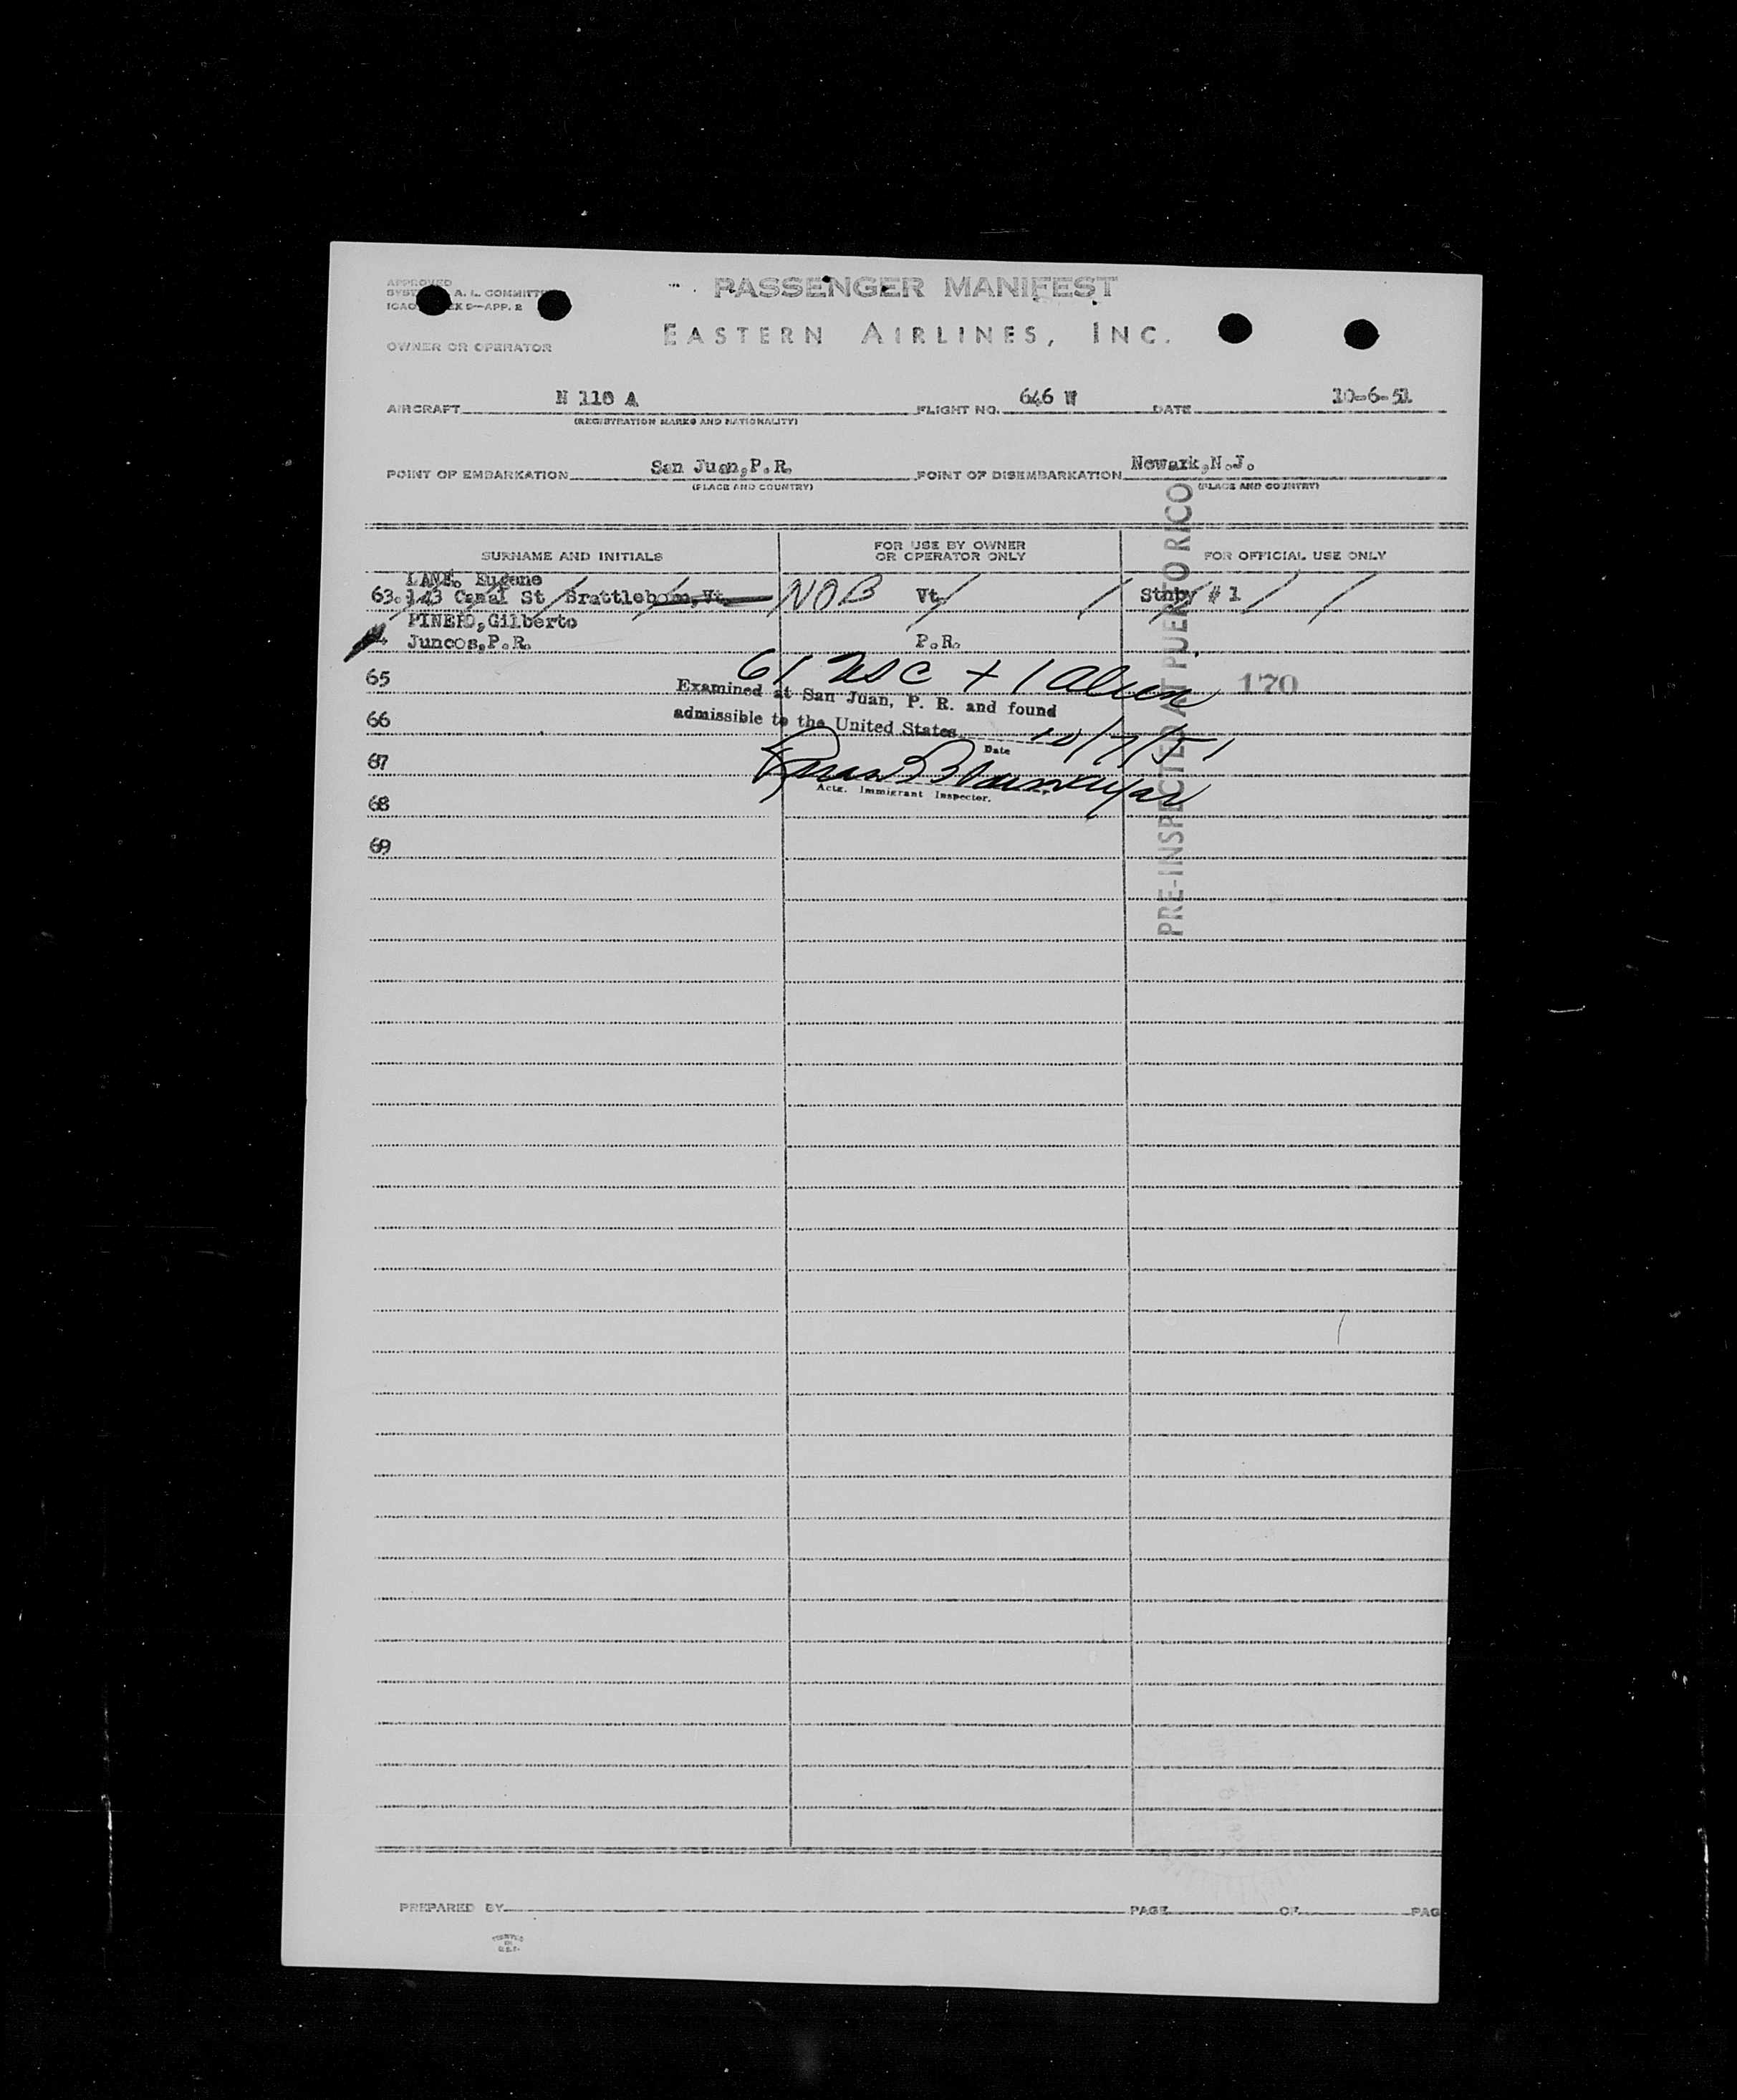 APPROVED
A. L. COMMITTE
ICAO EX 9—APP. 2
PASSENGER MANIFEST
EASTERN AIRLINES, INC.
OWNER OR OPERATOR
AIRCRAFT N 118 A FLIGHT NO. 646 W DATE 10-6-51
(REGISTRATION MARKS AND NATIONALITY)
POINT OF EMBARKATION San Juan,P.R. POINT OF DISEMBARKATION Newark,N.J.
(PLACE AND COUNTRY) (PLACE AND COUNTRY)
SURNAME AND INITIALS FOR USE BY OWNER OR OPERATOR ONLY FOR OFFICIAL USE ONLY
LANE, Eugene
63. 143 Canal St Brattleboro,Vt. NOB Vt. Stnby # 1
PINERO,Gilberto
Juncos,P.R. P.R.
65 61 USC + 1 Alien 170
Examined at San Juan, P. R. and found
66 admissible to the United States 10/7/51
Date
67
Actg. Immigrant Inspector.
68
69
PRE-INSPECTED AT PUERTO RICO
PREPARED BY PAGE OF PAG
PRINTED
IN
U.S.A.